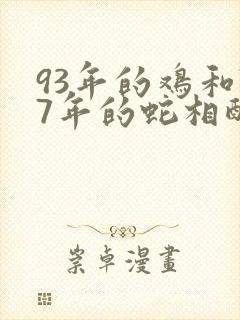 93年的鸡和
7年的蛇相
崇卓漫畫